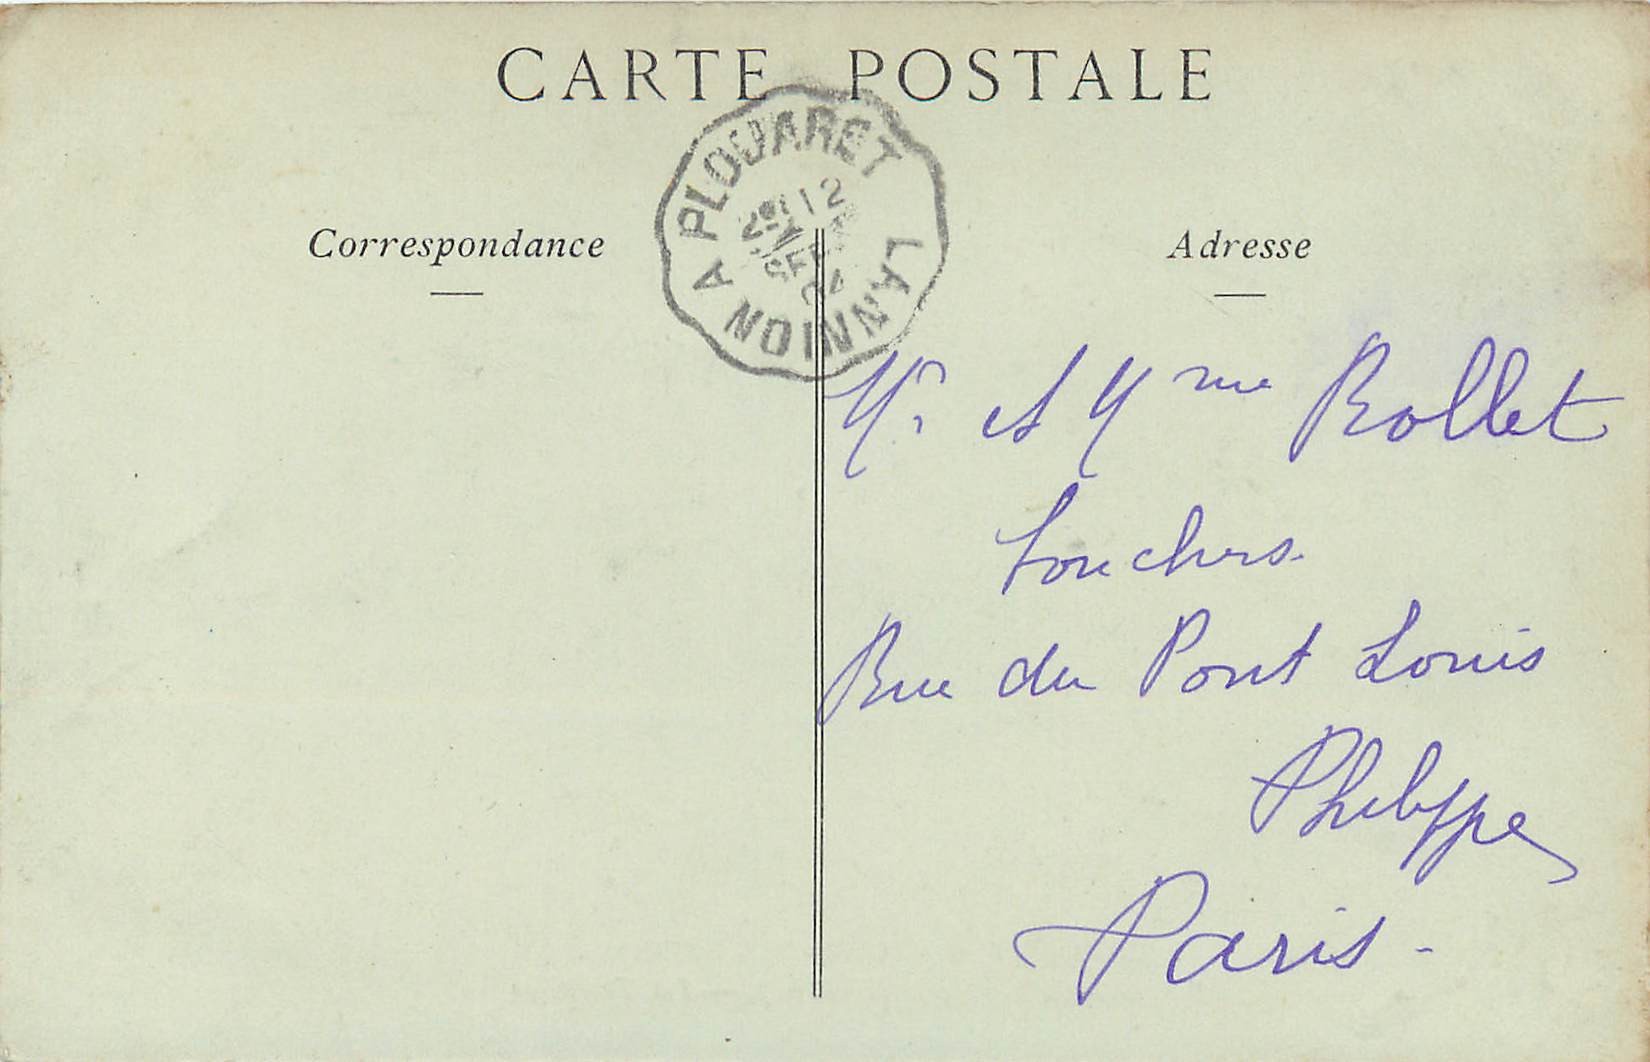 CARTE POSTALE
LANNION A PLOUARET
12
SEPT
Correspondance
Adresse
Mr et Mme Rollet
Rue du Pont Louis
Philippe
Paris -